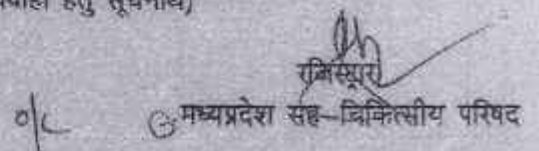 हेतु सूचनार्थ)
रजिस्ट्रार
o/c मध्यप्रदेश सह-चिकित्सीय परिषद